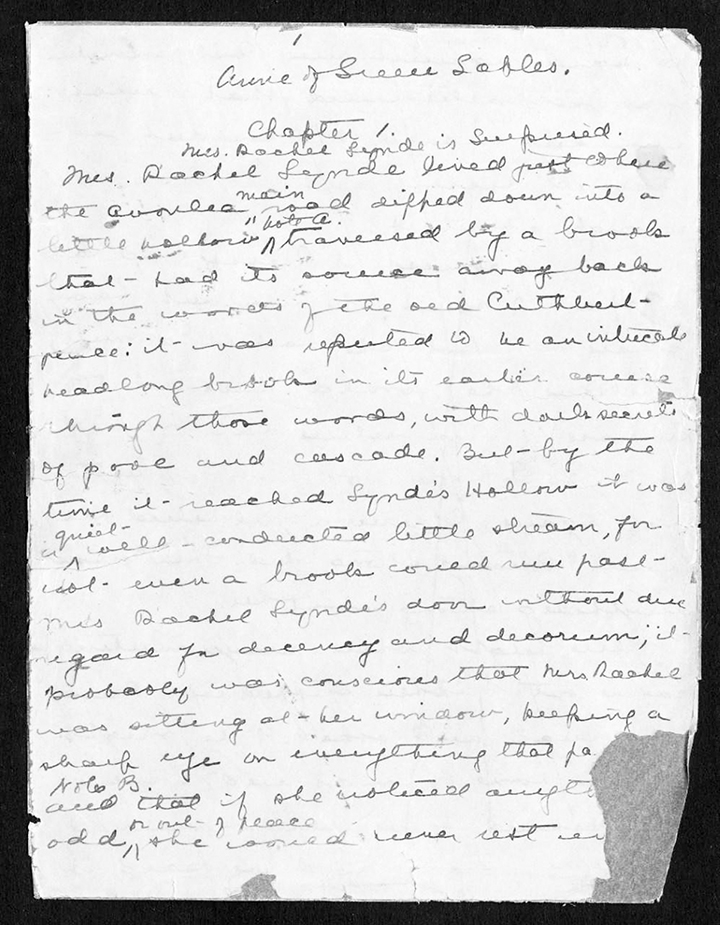 1
Anne of Green Gables.
Chapter 1.
Mrs. Rachel Lynde is Surprised.
Mrs. Rachel Lynde lived just where
the Avonlea main road dipped down into a
little hollow "Note A. traversed by a brook
that had its source away back
in the woods of the old Cuthbert
place: it was reputed to be an intricate
headlong brook in its earlier course
through those woods, with dark secrets
of pool and cascade. But by the
time it reached Lynde's Hollow it was
a quiet well-conducted little stream, for
not even a brook could run past
Mrs Rachel Lynde's door without due
regard for decency and decorum; it
probably was conscious that Mrs Rachel
was sitting at her window, keeping a
sharp eye on everything that pa
Note B.
and that if she noticed anyt
odd, or out of place she would never rest un